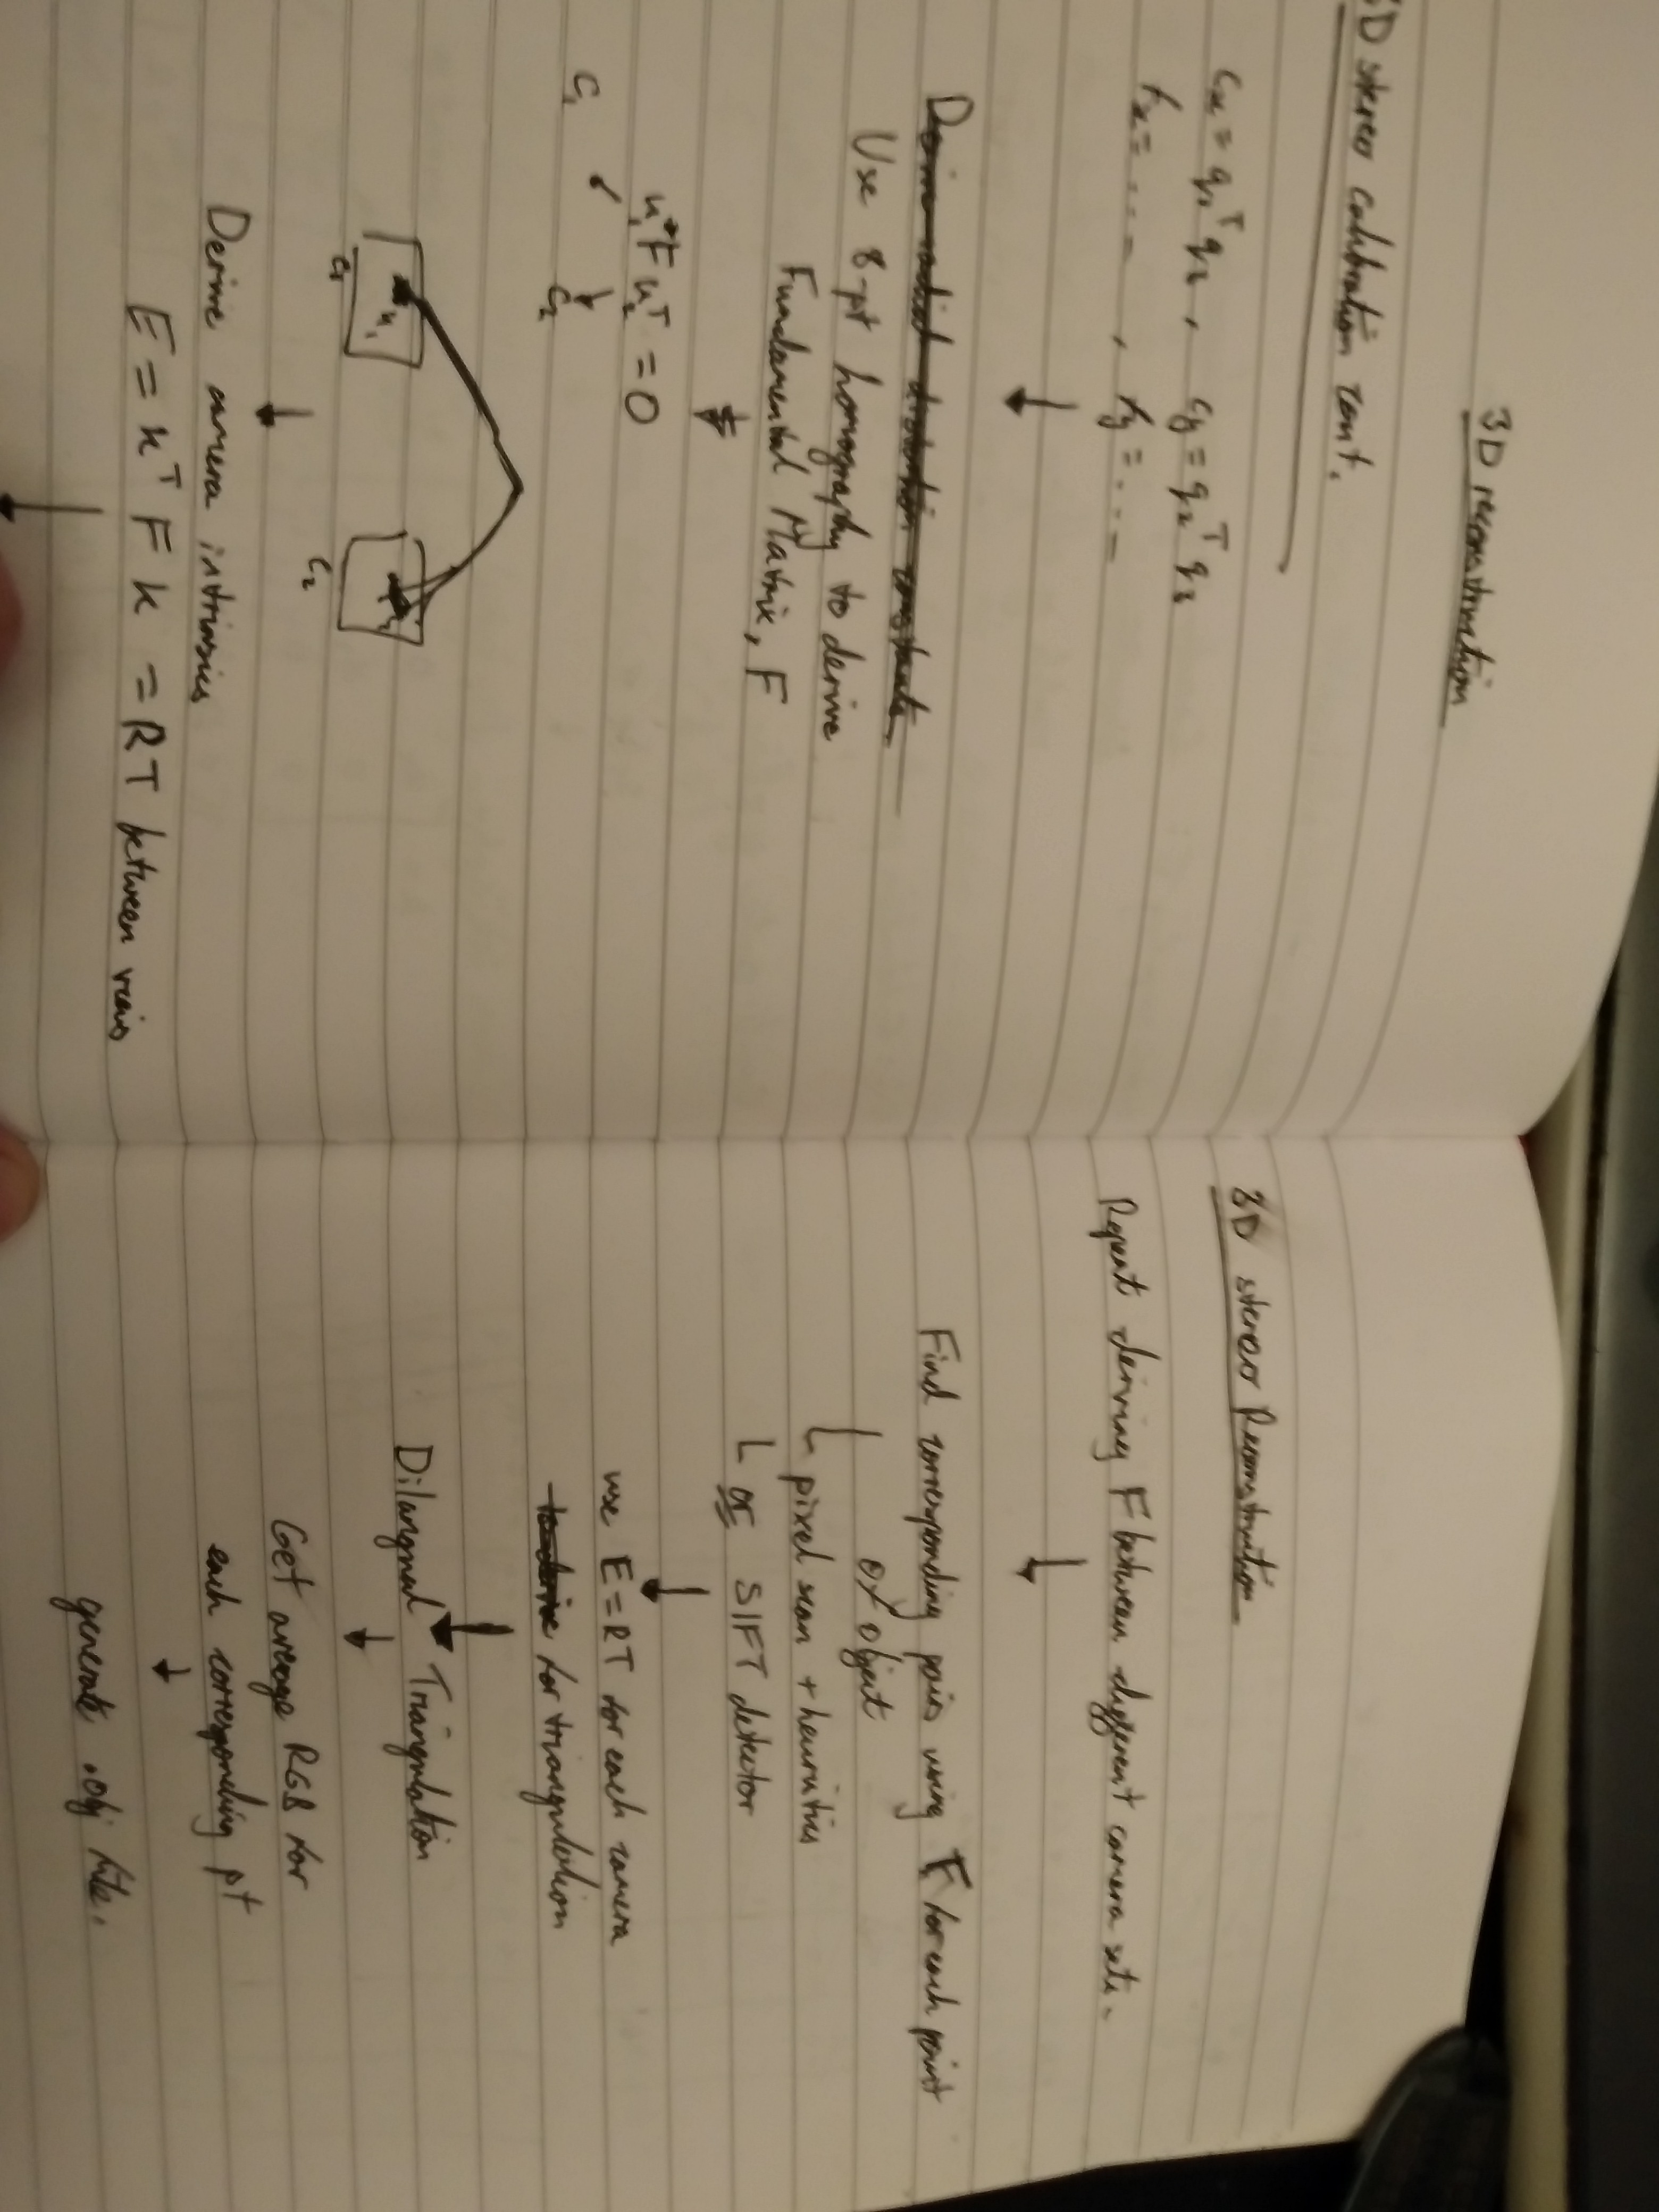 3D reconstruction
3D stereo calibration cont.
cx = q1ᵀ q3 , cy = q2ᵀ q3
fx = .... , fy = ....
Derive radial distortion constants
Use 8-pt homography to derive
Fundamental Matrix, F
u1 F u2ᵀ = 0
C1
C2
u1
C1
C2
Derive camera intrinsics
E = Kᵀ F K = RT between views
3D stereo Reconstruction
Repeat deriving F between different camera sets.
Find corresponding pairs using F for each point
of object
pixel scan + heuristics
or SIFT detector
use E = RT for each camera
to derive for triangulation
Dilangual Triangulation
Get average RGB for
each corresponding pt
generate .obj file.